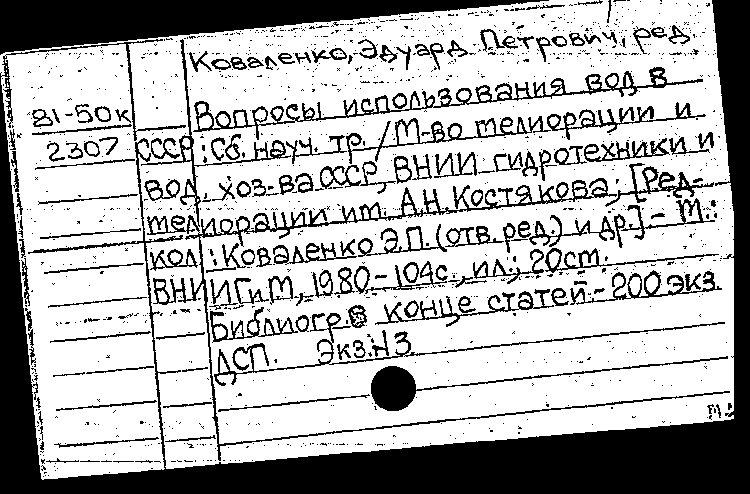 Коваленко, Эдуард Петрович, ред.
81-50к Вопросы использования вод в
2307 СССР: Сб. науч. тр. / М-во мелиорации и
вод. хоз-ва СССР, ВНИИ гидротехники и
мелиорации им. А.Н. Костякова; [Ред-
кол.: Коваленко Э.П. (отв. ред.) и др.]. - М.:
ВНИИГиМ, 1980 - 104с., ил.; 20см.
Библиогр. в конце статей. - 200 экз.
ДСП. Экз. № 3.